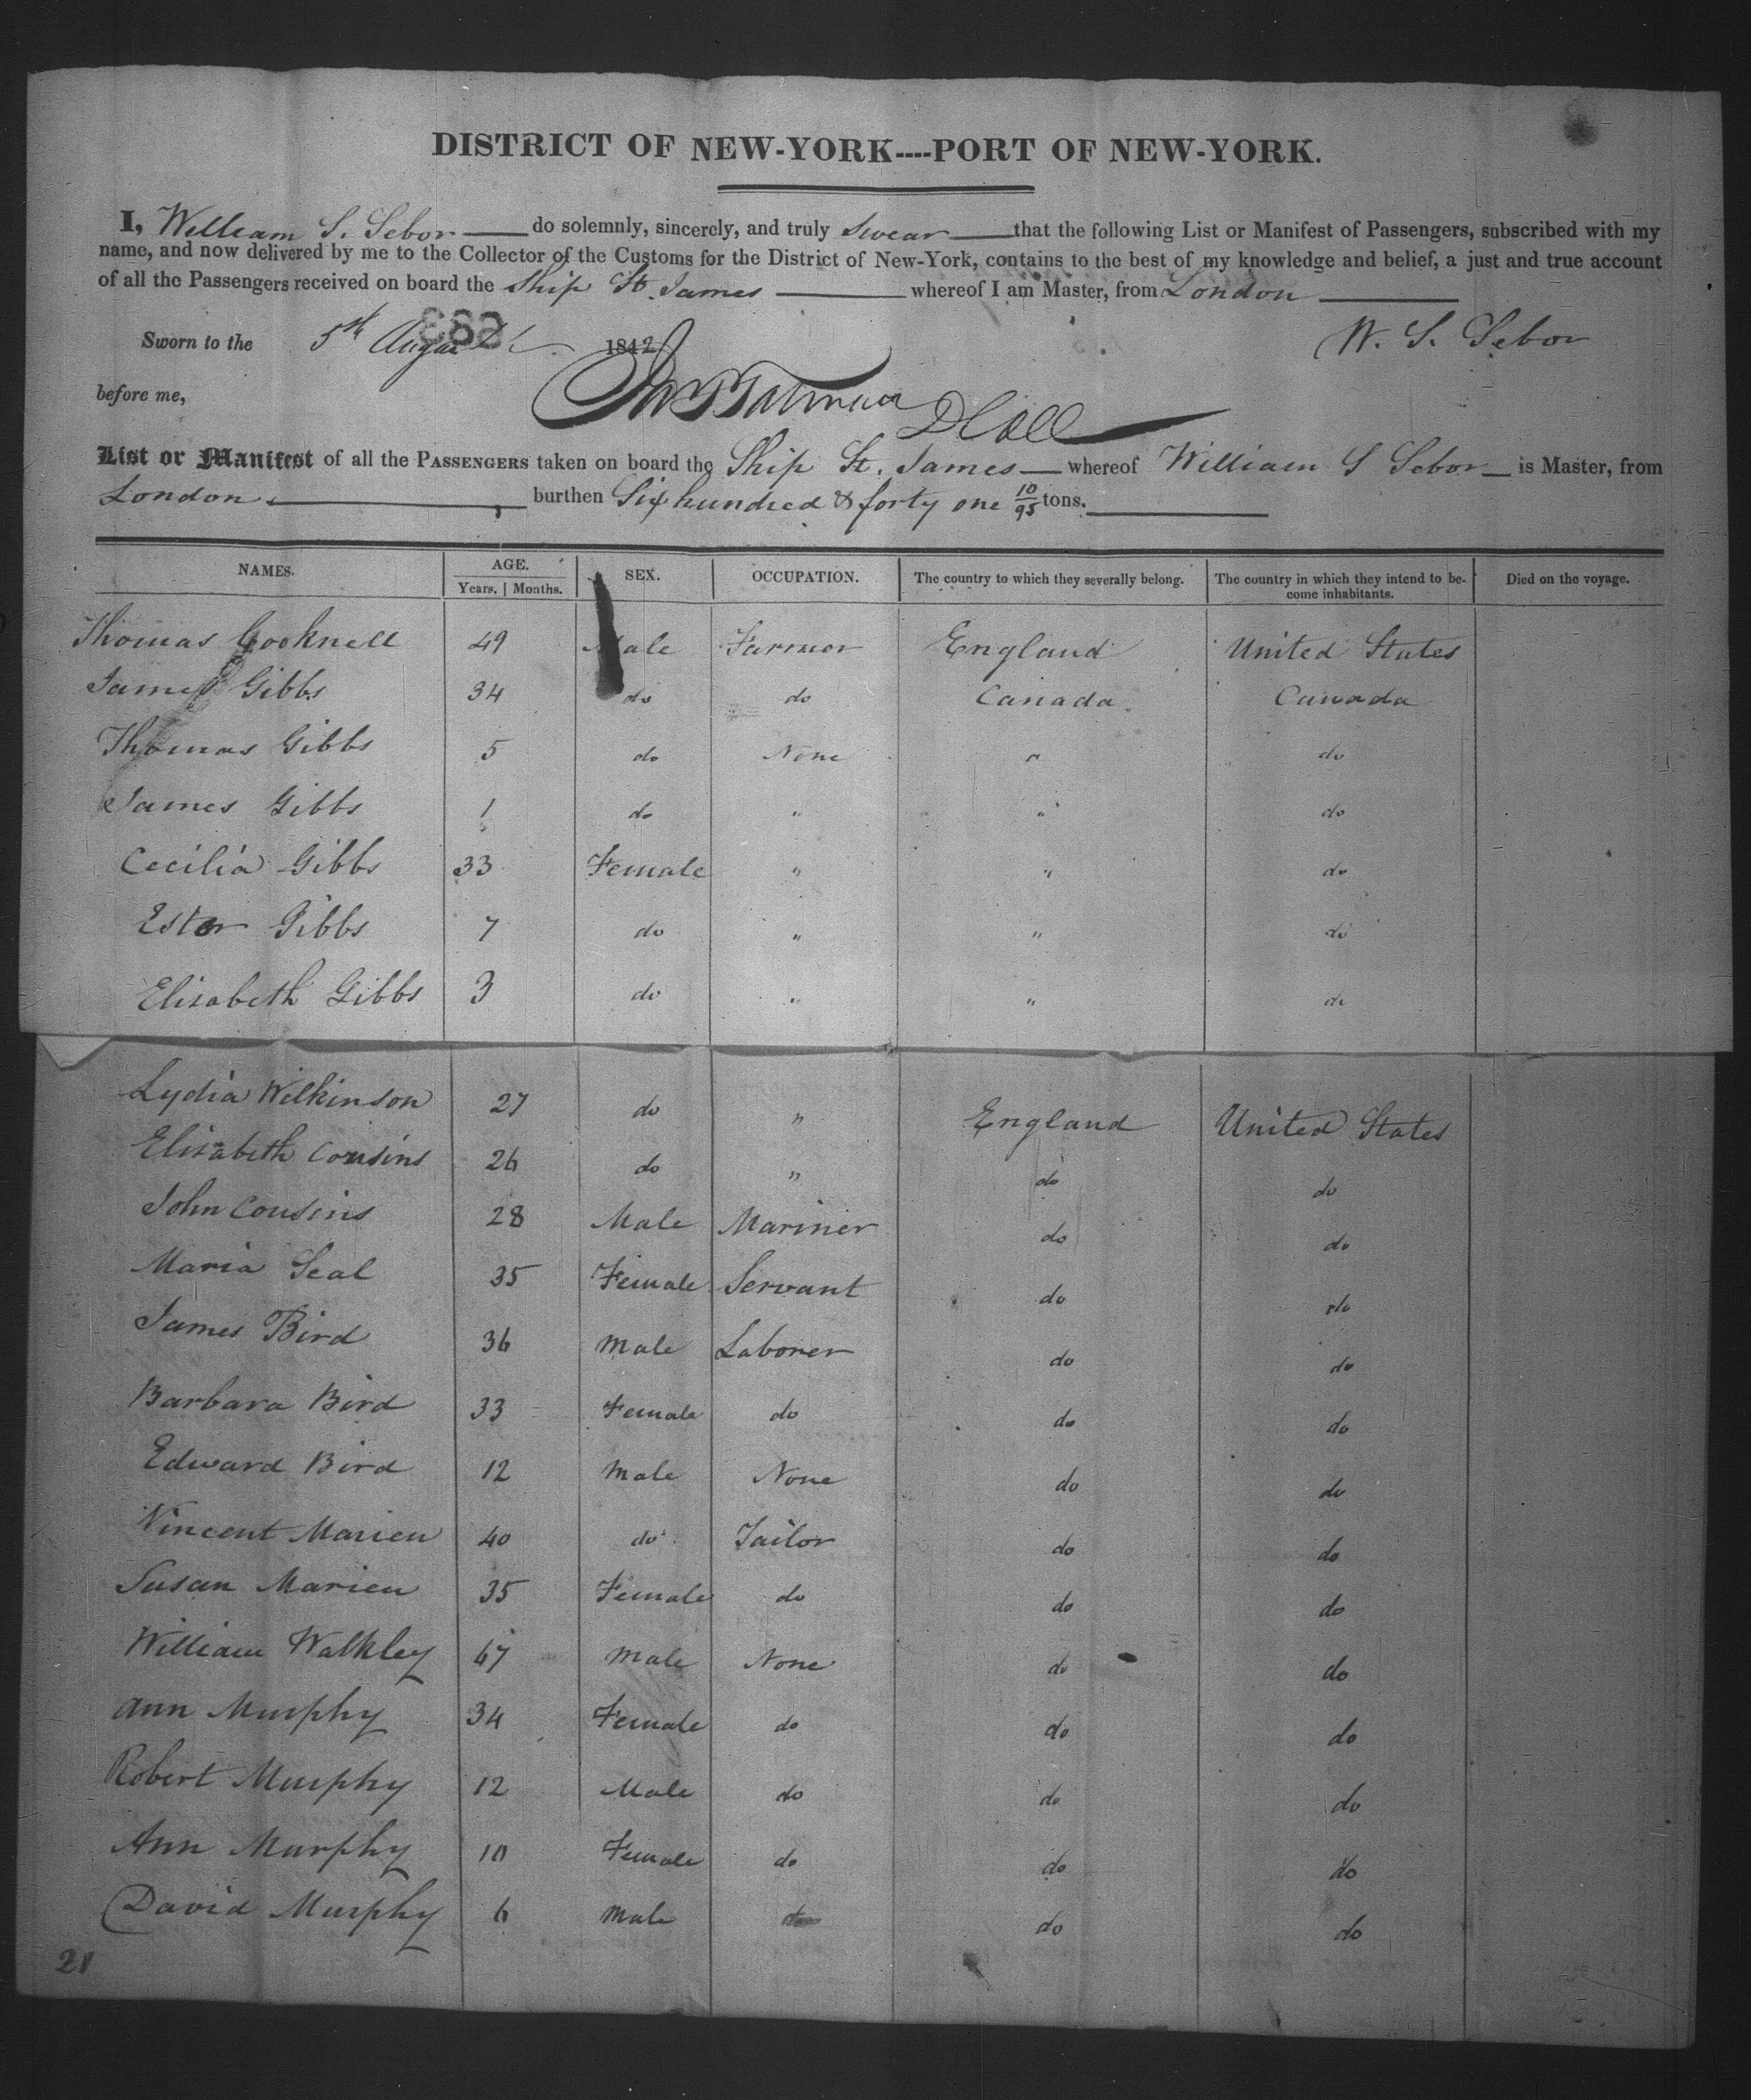 DISTRICT OF NEW-YORK----PORT OF NEW-YORK.
I, William S. Sebor do solemnly, sincerely, and truly Swear that the following List or Manifest of Passengers, subscribed with my
name, and now delivered by me to the Collector of the Customs for the District of New-York, contains to the best of my knowledge and belief, a just and true account
of all the Passengers received on board the Ship St. James whereof I am Master, from London
Sworn to the 5th August 1842 W. S. Sebor
before me,
D Coll
List or Manifest of all the PASSENGERS taken on board the Ship St. James whereof William S Sebor is Master, from
London burthen Six hundred & forty one 10/95 tons.
NAMES. AGE. SEX. OCCUPATION. The country to which they severally belong. The country in which they intend to be- Died on the voyage.
Years. Months. come inhabitants.
Thomas Cooknell 49 Male Farmer England United States
James Gibbs 34 do do Canada Canada
Thomas Gibbs 5 do None " do
James Gibbs 1 do " " do
Cecilia Gibbs 33 Female " " do
Ester Gibbs 7 do " " do
Elisabeth Gibbs 3 do " " do
Lydia Wilkinson 27 do " England United States
Elisabeth Cousins 26 do " do do
John Cousins 28 Male Mariner do do
Maria Seal 35 Female Servant do do
James Bird 36 Male Laborer do do
Barbara Bird 33 Female do do do
Edward Bird 12 Male None do do
Vincent Marien 40 do Tailor do do
Susan Marien 35 Female do do do
William Walkley 67 Male None do do
Ann Murphy 34 Female do do do
Robert Murphy 12 Male do do do
Ann Murphy 10 Female do do do
David Murphy 6 Male do do do
21